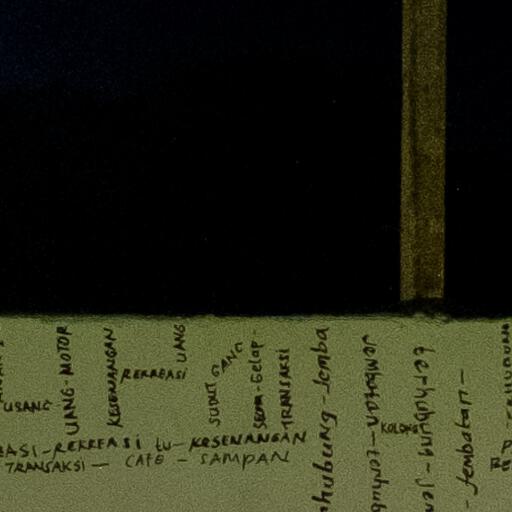 UANG-MOTOR
KESENANGAN
REKREASI
UANG
SUDUT GANG
SEMI-GELAP-
TRANSAKSI
hubung-jemba
jembatan-terhub
KOLONG
terhubung-jem
-jembatan-
ASI-REKREASI tu-KESENANGAN
TRANSAKSI - CAFE - SAMPAN